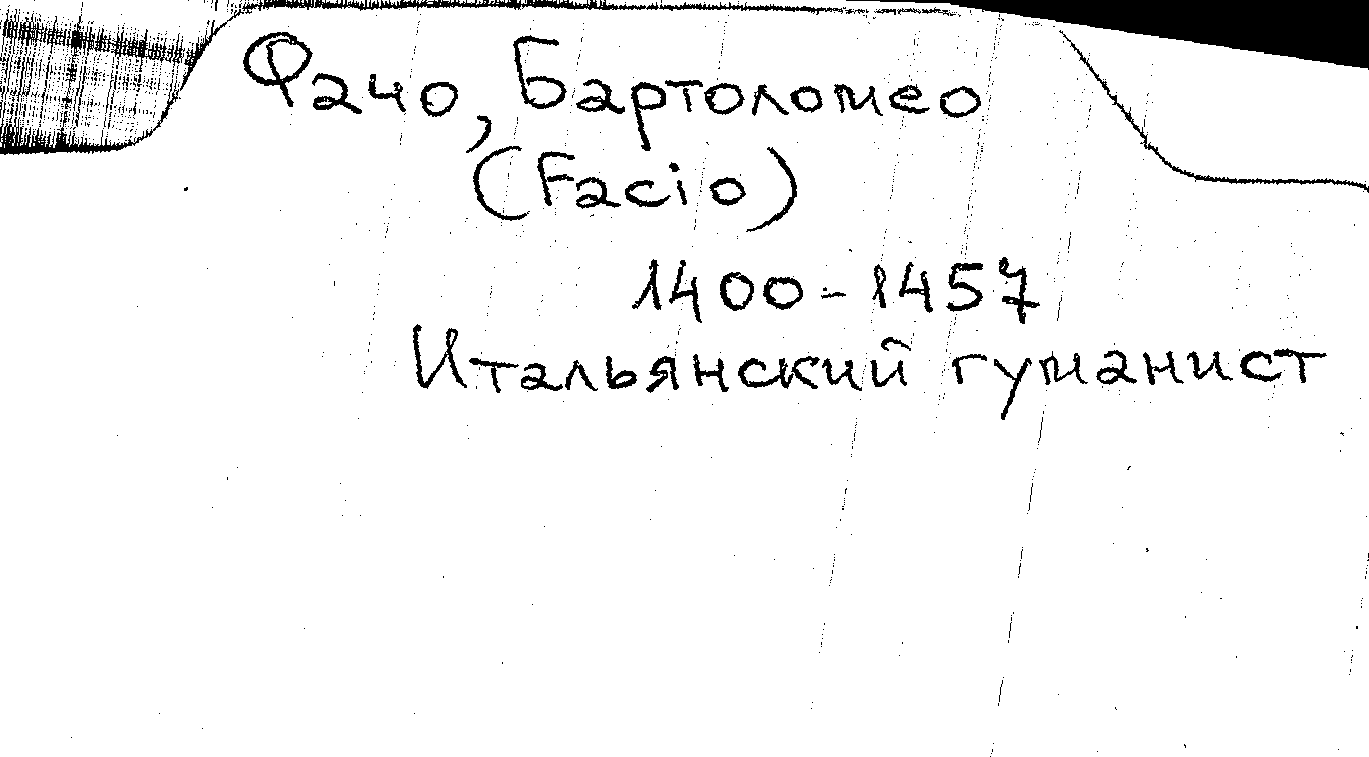 Фачо, Бартоломео
(Facio)
1400-1457
Итальянский гуманист